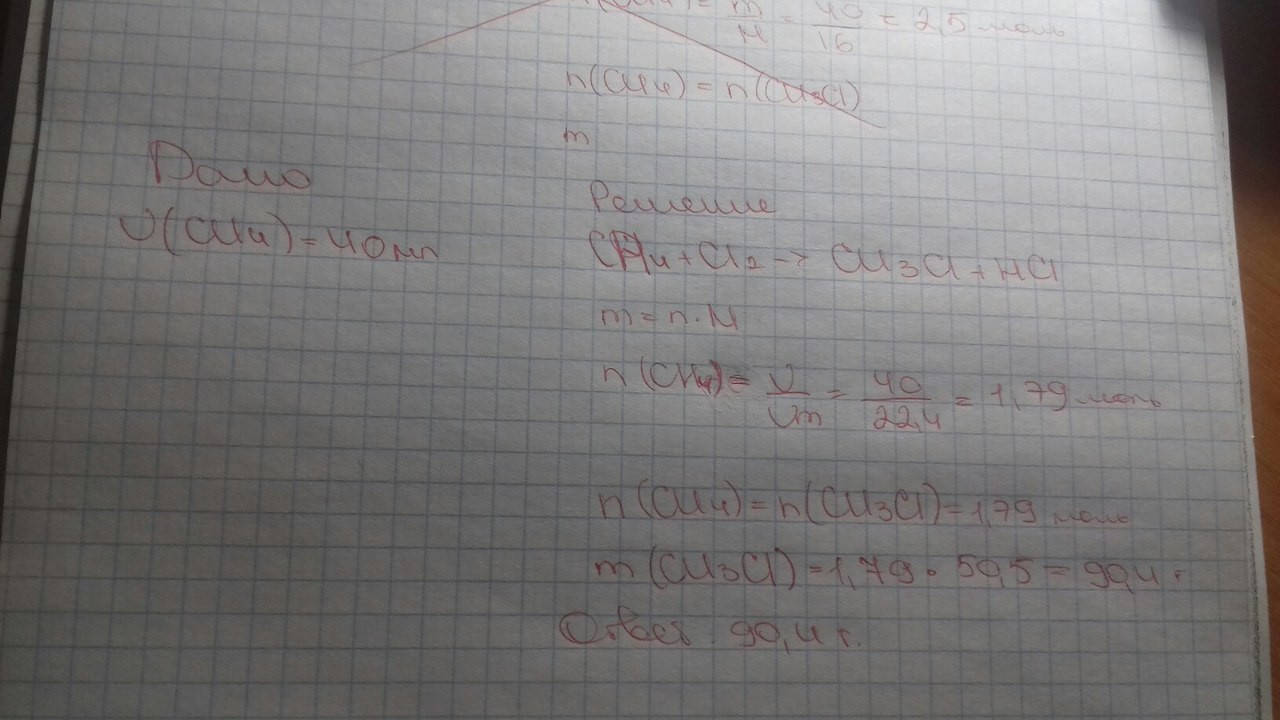 n(CH4) = m/M = 40/16 = 2,5 моль
n(CH4) = n(CH3Cl)
m
Дано
V(CH4) = 40мл
Решение
CH4 + Cl2 → CH3Cl + HCl
m = n · M
n(CH4) = V/Vm = 40/22,4 = 1,79 моль
n(CH4) = n(CH3Cl) = 1,79 моль
m(CH3Cl) = 1,79 · 50,5 = 90,4 г
Ответ 90,4 г.